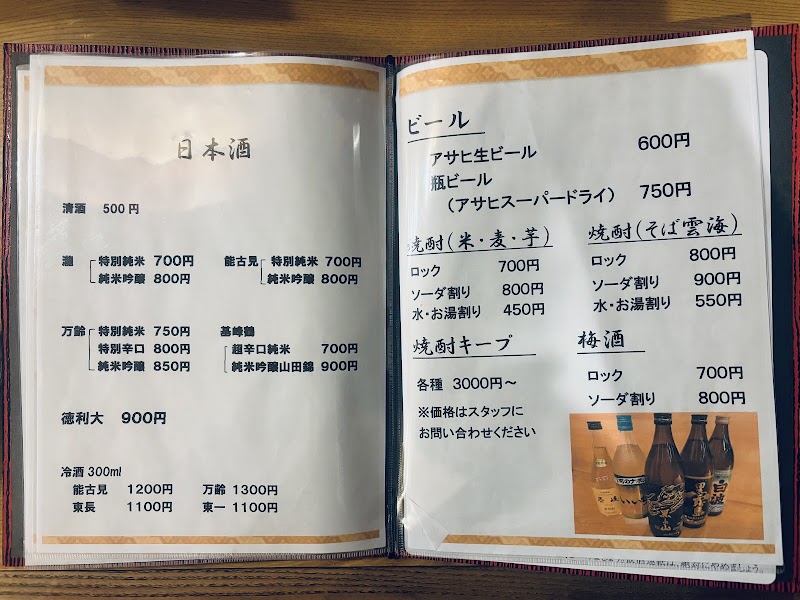 日本酒
清酒 500円
瀧 特別純米 700円
純米吟醸 800円
能古見 特別純米 700円
純米吟醸 800円
万齢 特別純米 750円
特別辛口 800円
純米吟醸 850円
基峰鶴
超辛口純米 700円
純米吟醸山田錦 900円
徳利大 900円
冷酒300ml
能古見 1200円 万齢 1300円
東長 1100円 東一 1100円
ビール
アサヒ生ビール 600円
瓶ビール
（アサヒスーパードライ） 750円
焼酎（米・麦・芋）
ロック 700円
ソーダ割り 800円
水・お湯割り 450円
焼酎（そば雲海）
ロック 800円
ソーダ割り 900円
水・お湯割り 550円
焼酎キープ
各種 3000円～
※価格はスタッフに
お問い合わせください
梅酒
ロック 700円
ソーダ割り 800円
いいちこ
黒霧島
白波